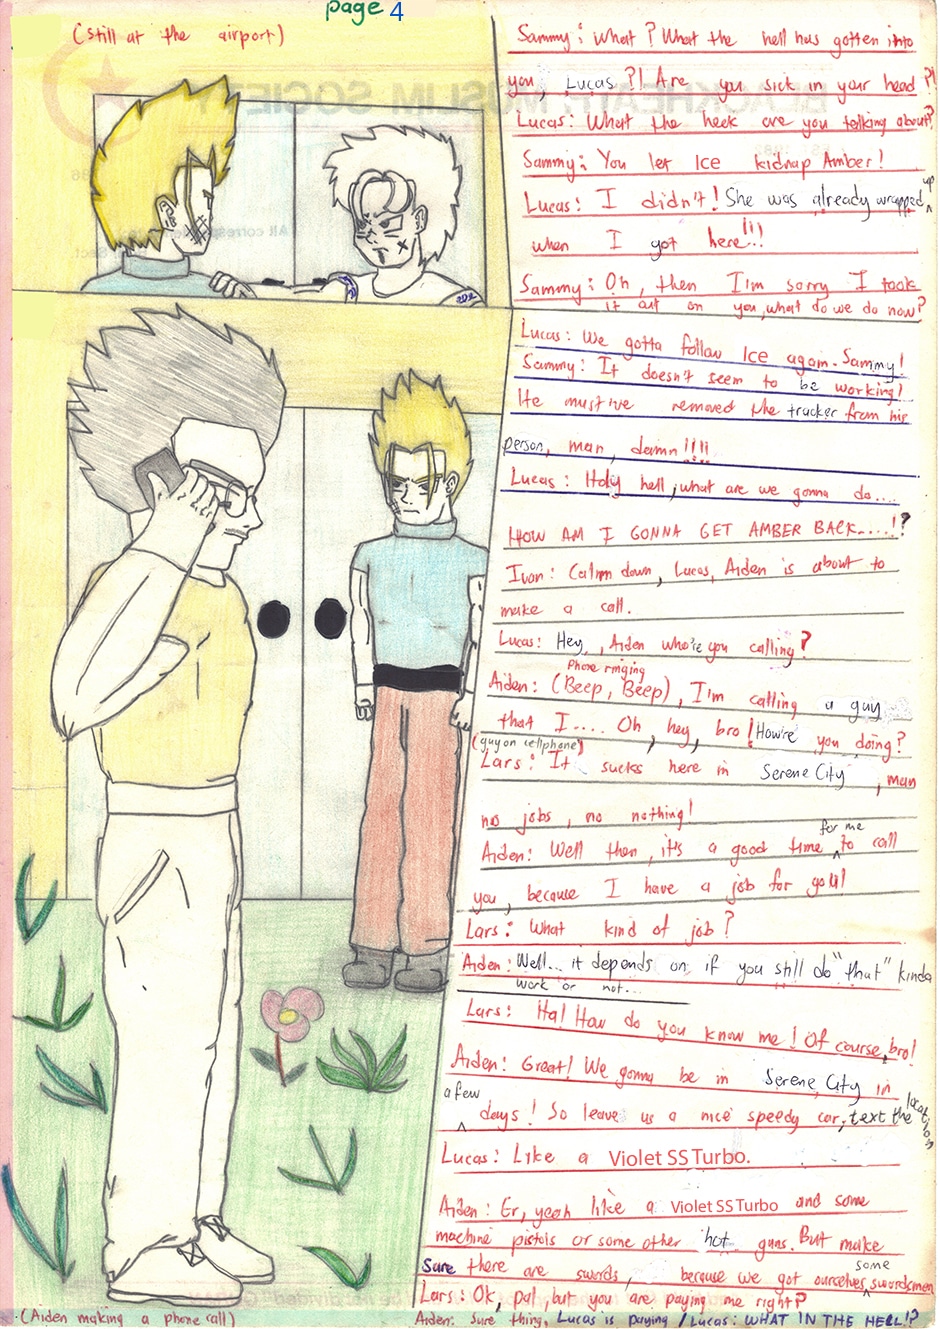 page 4
(still at the airport)
Sammy: What? What the hell has gotten into
you, Lucas?! Are you sick in your head?!
Lucas: What the heck are you talking about?
Sammy: You let Ice kidnap Amber!
Lucas: I didn't! She was already wrapped up
when I got here!!!
Sammy: Oh, then I'm sorry I took
it out on you, what do we do now?
Lucas: We gotta follow Ice again. Sammy!
Sammy: It doesn't seem to be working!
He must've removed the trucker from his
person, man, damn!!!!
Lucas: Holy hell, what are we gonna do....
HOW AM I GONNA GET AMBER BACK....!?
Ivan: Calm down, Lucas, Aiden is about to
make a call.
Lucas: Hey, Aiden who're you calling?
Phone ringing
Aiden: (Beep, Beep), I'm calling a guy
that I.... Oh, hey, bro! How're you doing?
(guy on cellphone)
Lars: It sucks here in Serene City, man
no jobs, no nothing!
Aiden: Well then, it's a good time for me to call
you, because I have a job for you!
Lars: What kind of job?
Aiden: Well... it depends on if you still do "that" kinda
work or not...
Lars: Ha! How do you know me! Of course, bro!
Aiden: Great! We gonna be in Serene City in
a few days! So leave us a nice speedy car, text the location
Lucas: Like a Violet SS Turbo.
Aiden: Er, yeah like a Violet SS Turbo and some
machine pistols or some other hot guns. But make
Sure there are swords, because we got ourselves some swordsmen
Lars: Ok, pal, but you are paying me right?
(Aiden making a phone call)
Aiden: Sure thing, Lucas is paying / Lucas: WHAT IN THE HELL!?
BLACKHEATH MUSLIM SOCIETY